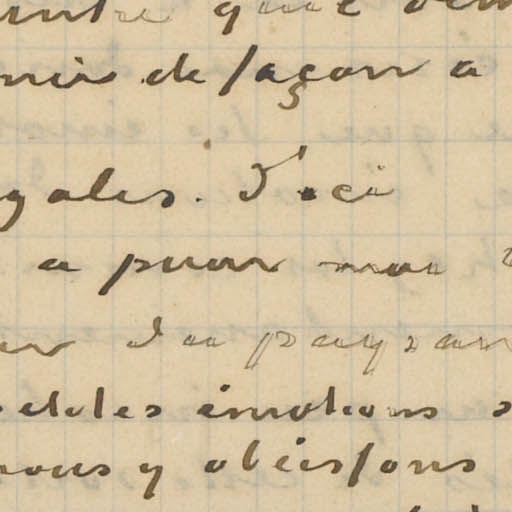 que
nir de façon a
gales. D'ici
a pour moi
du paysan
émotions
nous y obéissons